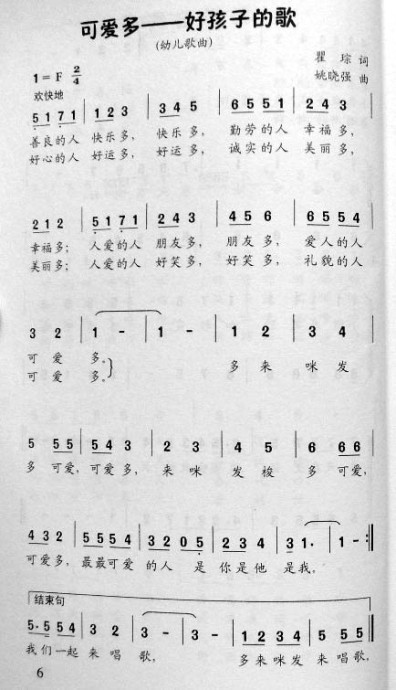 可爱多——好孩子的歌
(幼儿歌曲)
瞿 琮 词
1=F 2/4
姚晓强 曲
欢快地
5 1 7 1 | 1 2 3 | 3 4 5 | 6 5 5 1 | 2 4 3 |
善良的人 快乐多, 快乐多, 勤劳的人 幸福多,
好心的人 好运多, 好运多, 诚实的人 美丽多,
2 1 2 | 5 1 7 1 | 2 4 3 | 4 5 6 | 6 5 5 4 |
幸福多; 人爱的人 朋友多, 朋友多, 爱人的人
美丽多; 人爱的人 好笑多, 好笑多, 礼貌的人
3 2 | 1 - | 1 - | 1 2 | 3 4 |
可 爱 多。
可 爱 多。} 多 来 咪 发
5 5 5 | 5 4 3 | 2 3 | 4 5 | 6 6 6 |
多 可爱, 可爱多, 来 咪 发 梭 多 可爱,
4 3 2 | 5 5 5 4 | 3 2 0 5 | 2 3 4 | 3 1. | 1 - :‖
可爱多, 最最可爱 的人 是 你是他 是我,
结束句
5. 5 5 4 | 3 2 | 3 - | 3 - | 1 2 3 4 | 5 5 5 |
我们一起 来 唱 歌, 多来咪发 来唱歌,
6